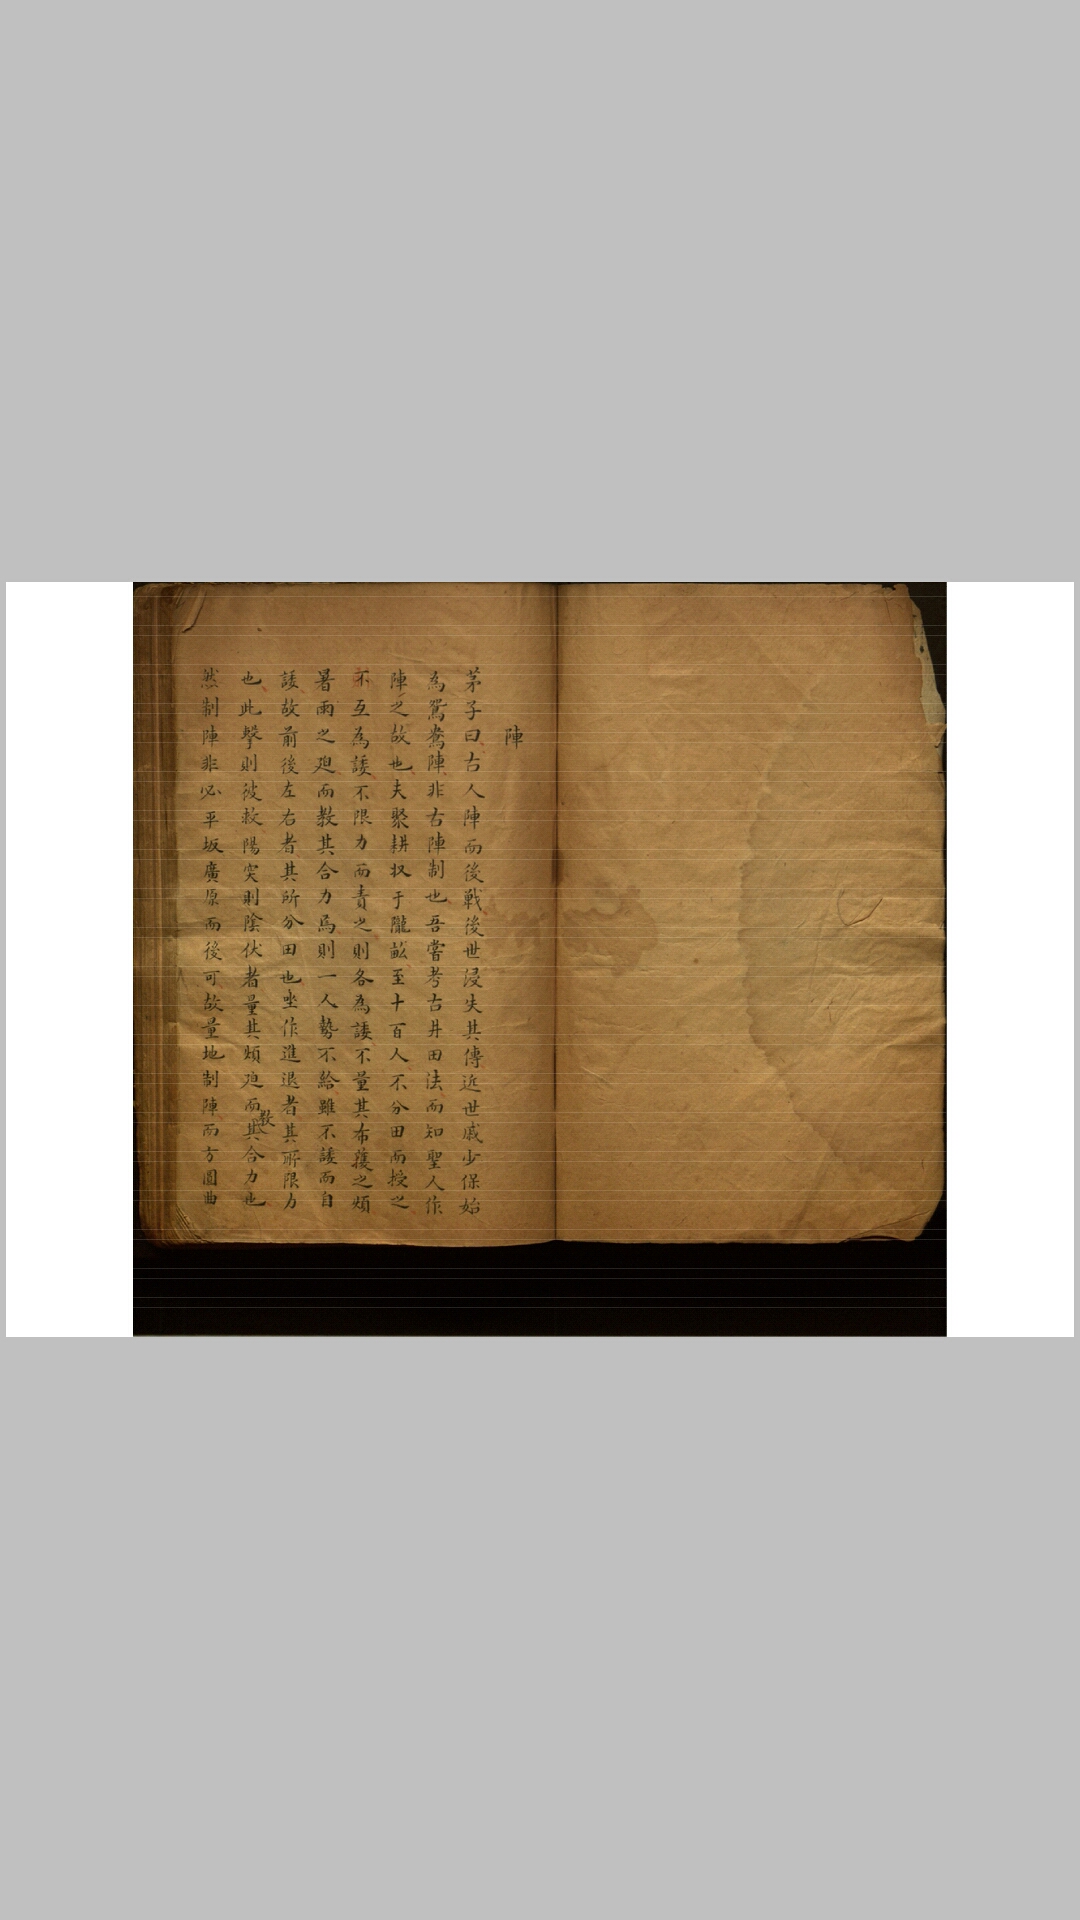 陣
茅子曰古人陣而後戰後世浸失其傳近世戚少保始
為鴛鴦陣非古陣制也吾嘗考古井田法而知聖人作
陣之故也夫聚耕収于隴畝至十百人不分田而授之
不互為諉不限力而責之則各為諉不量其布穫之煩
暑雨之廹而教其合力焉則一人勢不給雖不諉而自
諉故前後左右者其所分田也坐作進退者其所限力
也此擊則彼救陽突則陰伏者量其煩廹而教其合力也
然制陣非必平坂廣原而後可故量地制陣而方圓曲